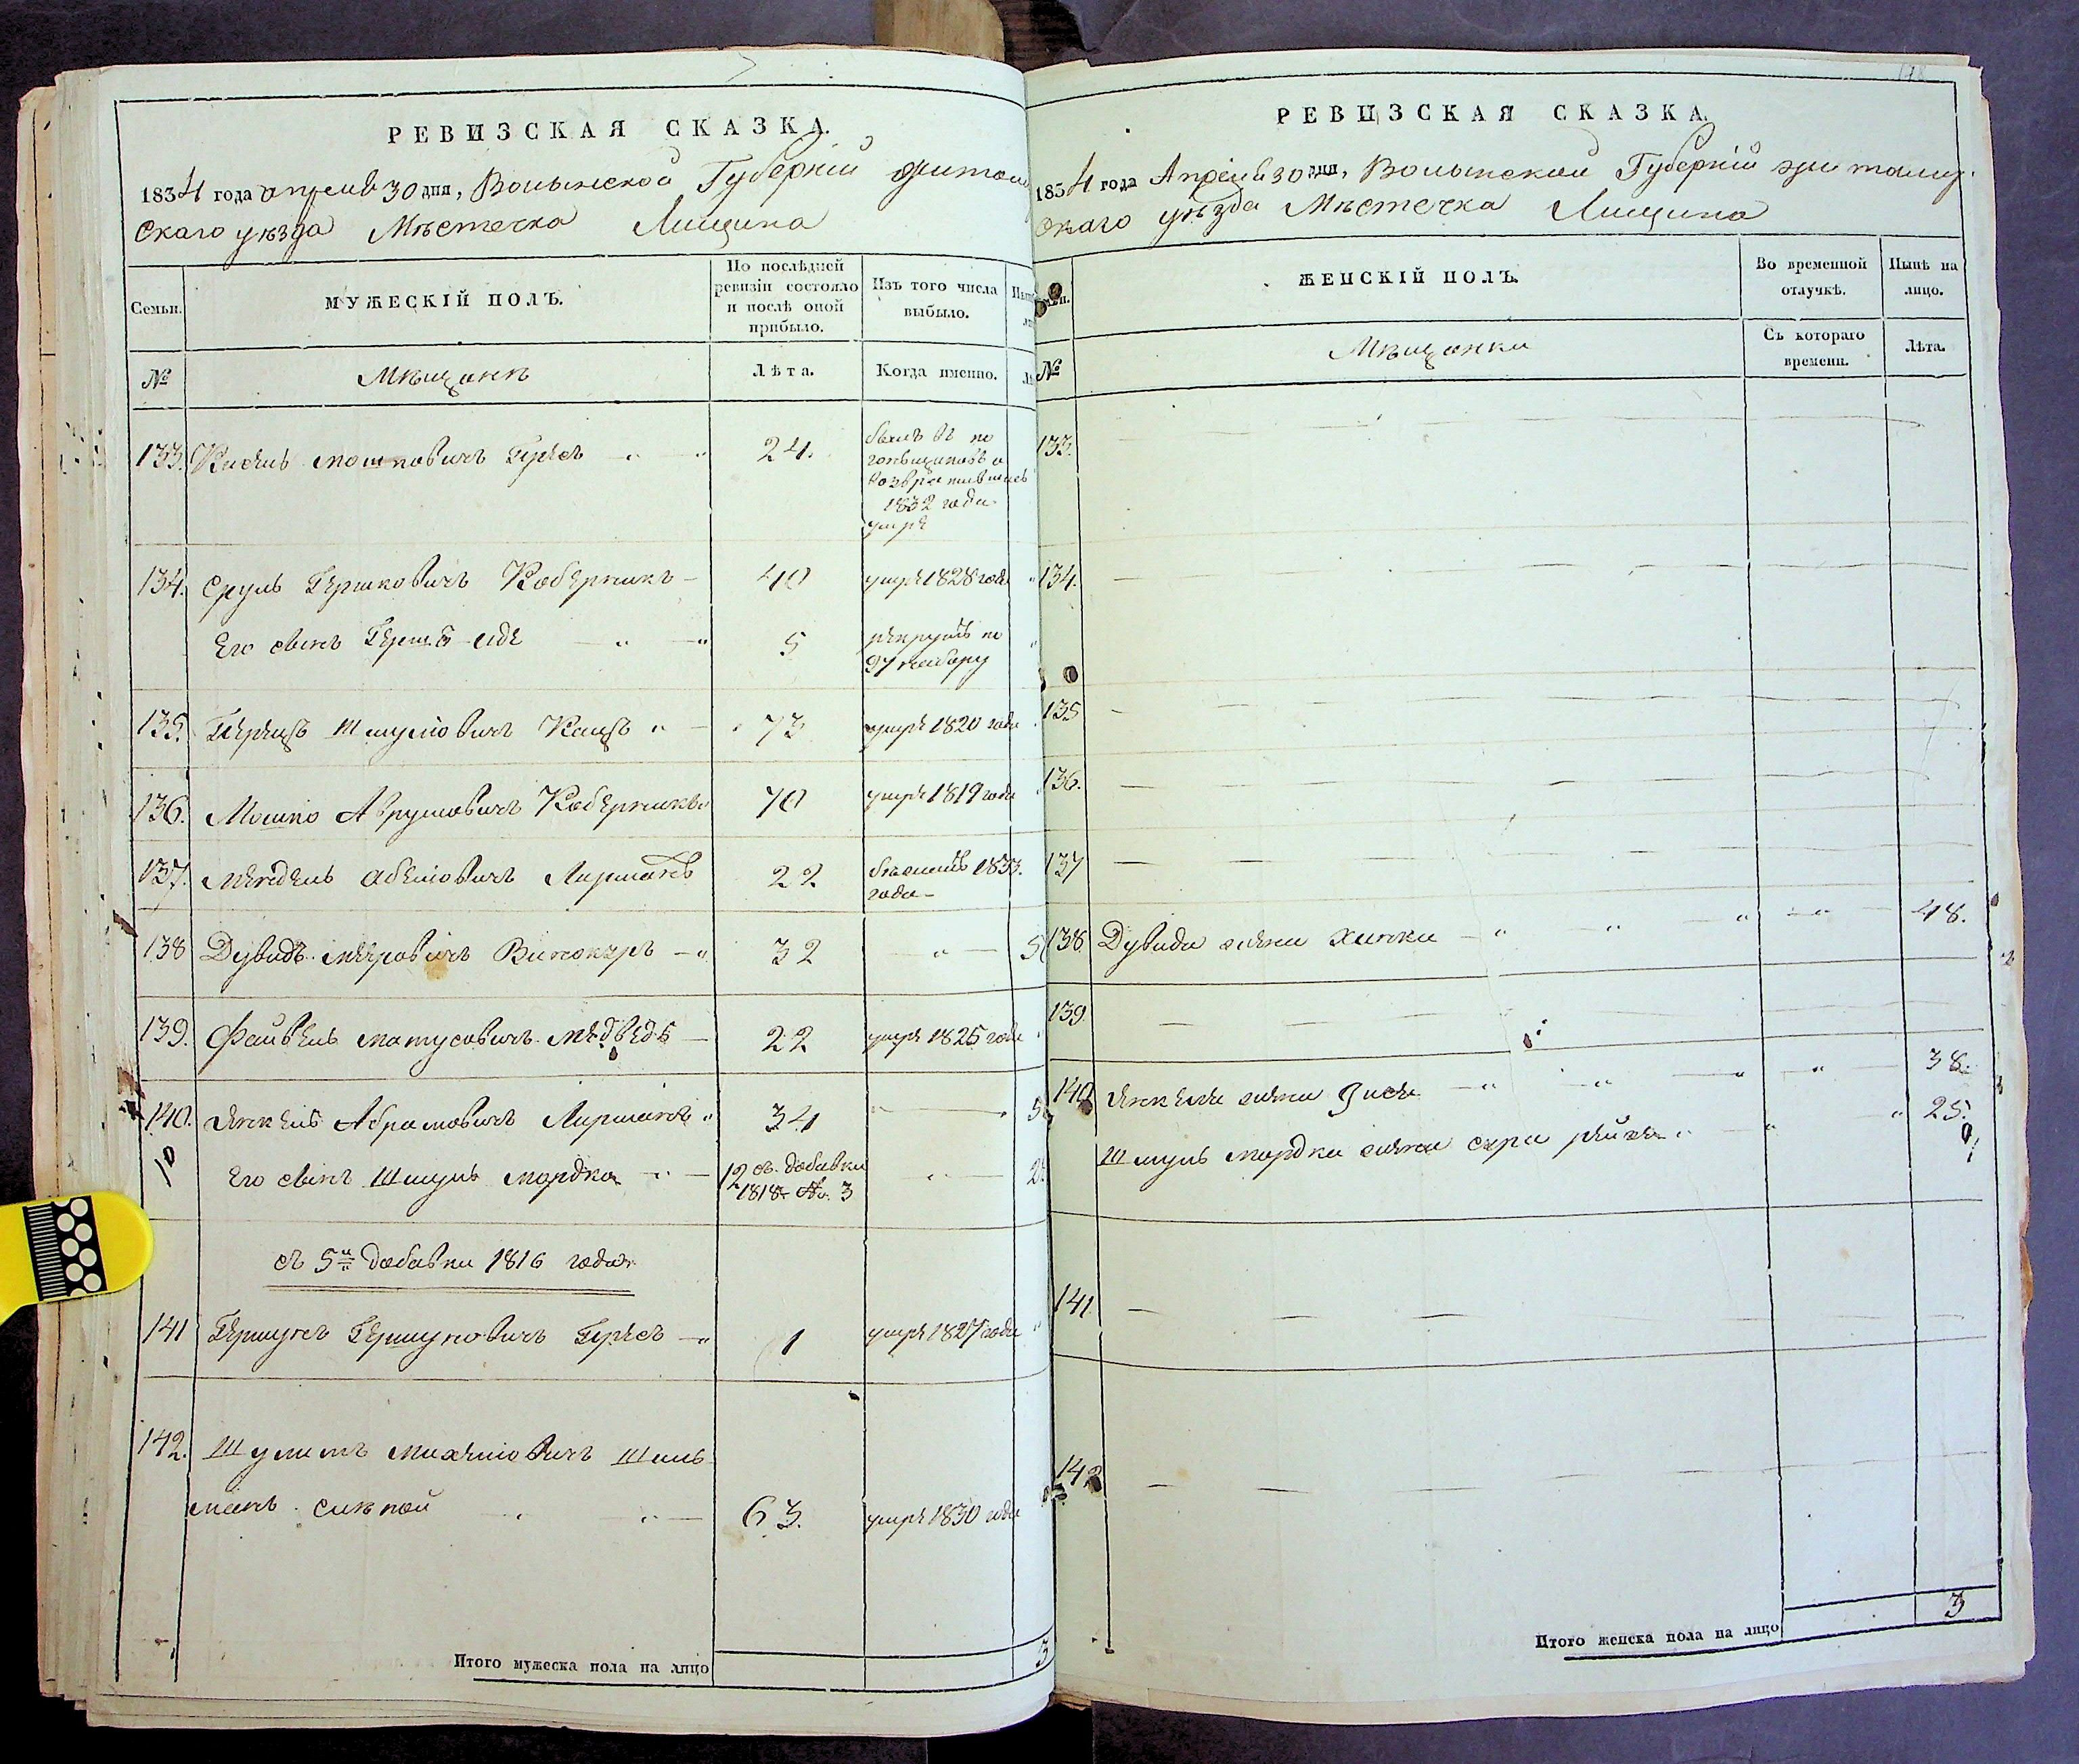 РЕВИЗСКАЯ СКАЗКА.
1834 года апреля 30 дня, Волынской Губернии Житом
скаго уезда Мѣстечка Лищина
Семьи.
МУЖЕСКІЙ ПОЛЪ.
По послѣдней ревизіи состояло и послѣ оной прибыло.
Изъ того числа выбыло.
№
Мѣщане
Лѣта.
Когда именно.
133. Кисель Мошковичъ Гресъ 24.
1832 года
умре
134. Сруль Гершковичъ Коберникъ 40 умре 1828 года
Его сынъ Гершъ 5 рекрутъ по
97 набору
135. Герецъ Шмулiовичъ Кацъ 73 умре 1820 года
136. Мошко Аврумовичъ Коберникъ 70 умре 1819 года
137. Мендель Абелiовичъ Лирманъ 22 1833.
года
138 Дувидъ Мееровичъ Винокуръ 32
139. Файвель Матусовичъ Медведь 22 умре 1825 года
140. Янкель Абрамовичъ Лирманъ 34
Его сынъ Шмуль Мордко 12 съ добавки
1818 № 3
съ 5й добавки 1816 года
141 Гершунъ Гершуновичъ Гресъ 1 умре 1827 года
142. Шулимъ Михелiовичъ Шиль
манъ слѣпой 63. умре 1830 года
Итого мужеска пола на лицо 3
РЕВИЗСКАЯ СКАЗКА.
1834 года Апреля 30 дня, Волынской Губернии Житомир
скаго уѣзда Мѣстечка Лищина
ЖЕНСКІЙ ПОЛЪ.
Во временной отлучкѣ.
Нынѣ на лицо.
№
Мѣщанки
Съ котораго времени.
Лѣта.
133.
134.
135
136.
137
138 Дувида жена Хинка 48.
139.
140 Янкеля жена 38.
Шмуль Мордки жена Сура Рейзя 25.
141
142
Итого женска пола на лицо 3